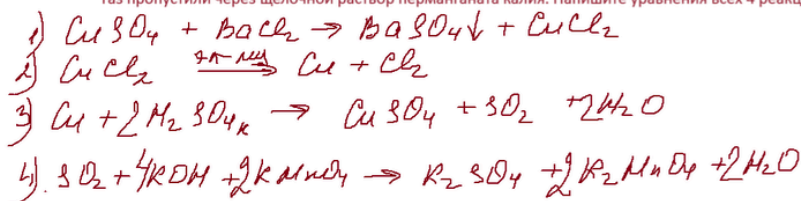 газ пропустили через щелочной раствор перманганата калия. Напишите уравнения всех 4 реакц
1) CuSO₄ + BaCl₂ → BaSO₄↓ + CuCl₂
2) CuCl₂ эл-лиз → Cu + Cl₂
3) Cu + 2H₂SO₄к → CuSO₄ + SO₂ + 2H₂O
4). SO₂ + 4KOH + 2KMnO₄ → K₂SO₄ + 2K₂MnO₄ + 2H₂O